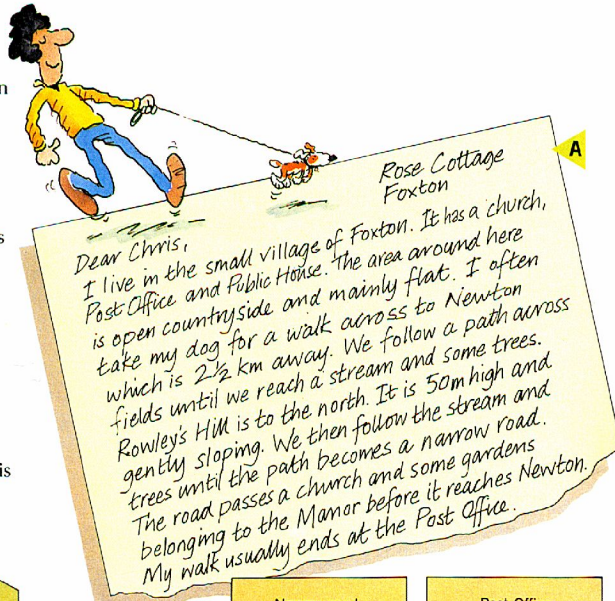 n
A
Rose Cottage
Foxton
s
Dear Chris,
I live in the small village of Foxton. It has a church,
Post Office and Public House. The area around here
is open countryside and mainly flat. I often
take my dog for a walk across to Newton
which is 2½ km away. We follow a path across
fields until we reach a stream and some trees.
Rowley's Hill is to the north. It is 50m high and
gently sloping. We then follow the stream and
trees until the path becomes a narrow road.
The road passes a church and some gardens
belonging to the Manor before it reaches Newton.
My walk usually ends at the Post Office.
is